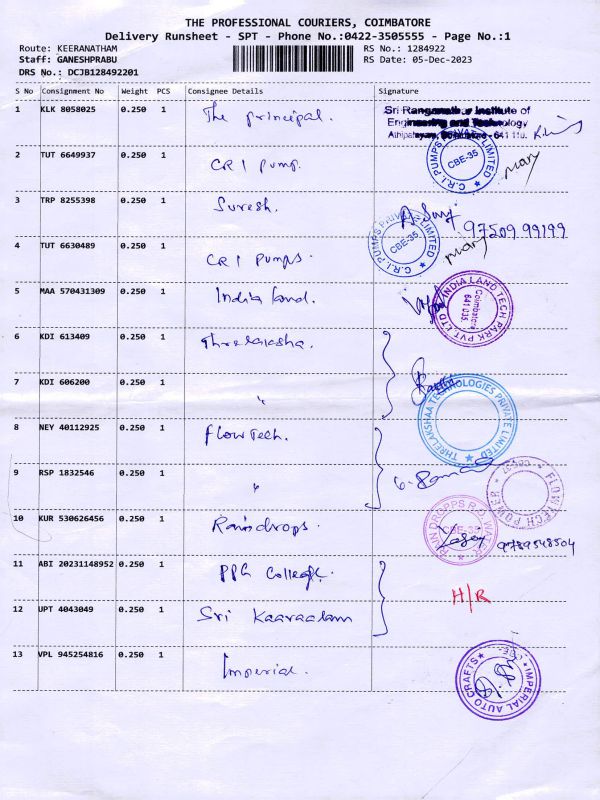 THE PROFESSIONAL COURIERS, COIMBATORE
Delivery Runsheet - SPT - Phone No.:0422-3505555 - Page No.:1
Route: KEERANATHAM RS No.: 1284922
Staff: GANESHPRABU RS Date: 05-Dec-2023
DRS No.: DCJB128492201
S No Consignment No Weight PCS Consignee Details Signature
1 KLK 8058025 0.250 1 The principal. Sri Ranganathar Institute of
Engineering and Technology
Athipalayam, Coimbatore - 641 110.
2 TUT 6649937 0.250 1 CRI Pump. C.R.I. PUMPS PRIVATE LIMITED CBE-35 mary
3 TRP 8255398 0.250 1 Suresh. 97509 99199
4 TUT 6630489 0.250 1 CRI Pumps. C.R.I. PUMPS PRIVATE LIMITED CBE-35 mary
5 MAA 570431309 0.250 1 India land. INDIA LAND TECH PARK PVT LTD Coimbatore 641 035
6 KDI 613409 0.250 1 Threlaksha.
7 KDI 606200 0.250 1 " THRELAKSHAA TECHNOLOGIES PRIVATE LIMITED
8 NEY 40112925 0.250 1 flowTech.
9 RSP 1832546 0.250 1 " FLOWTECH POWER
10 KUR 530626456 0.250 1 Raindrops. RAIN DROPPS R.O. WATER CBE-35 9789548504
11 ABI 20231148952 0.250 1 PPG College. H/R
12 UPT 4043049 0.250 1 Sri Kaaraalam
13 VPL 945254816 0.250 1 Imperial. IMPERIAL AUTO CRAFTS CBE-